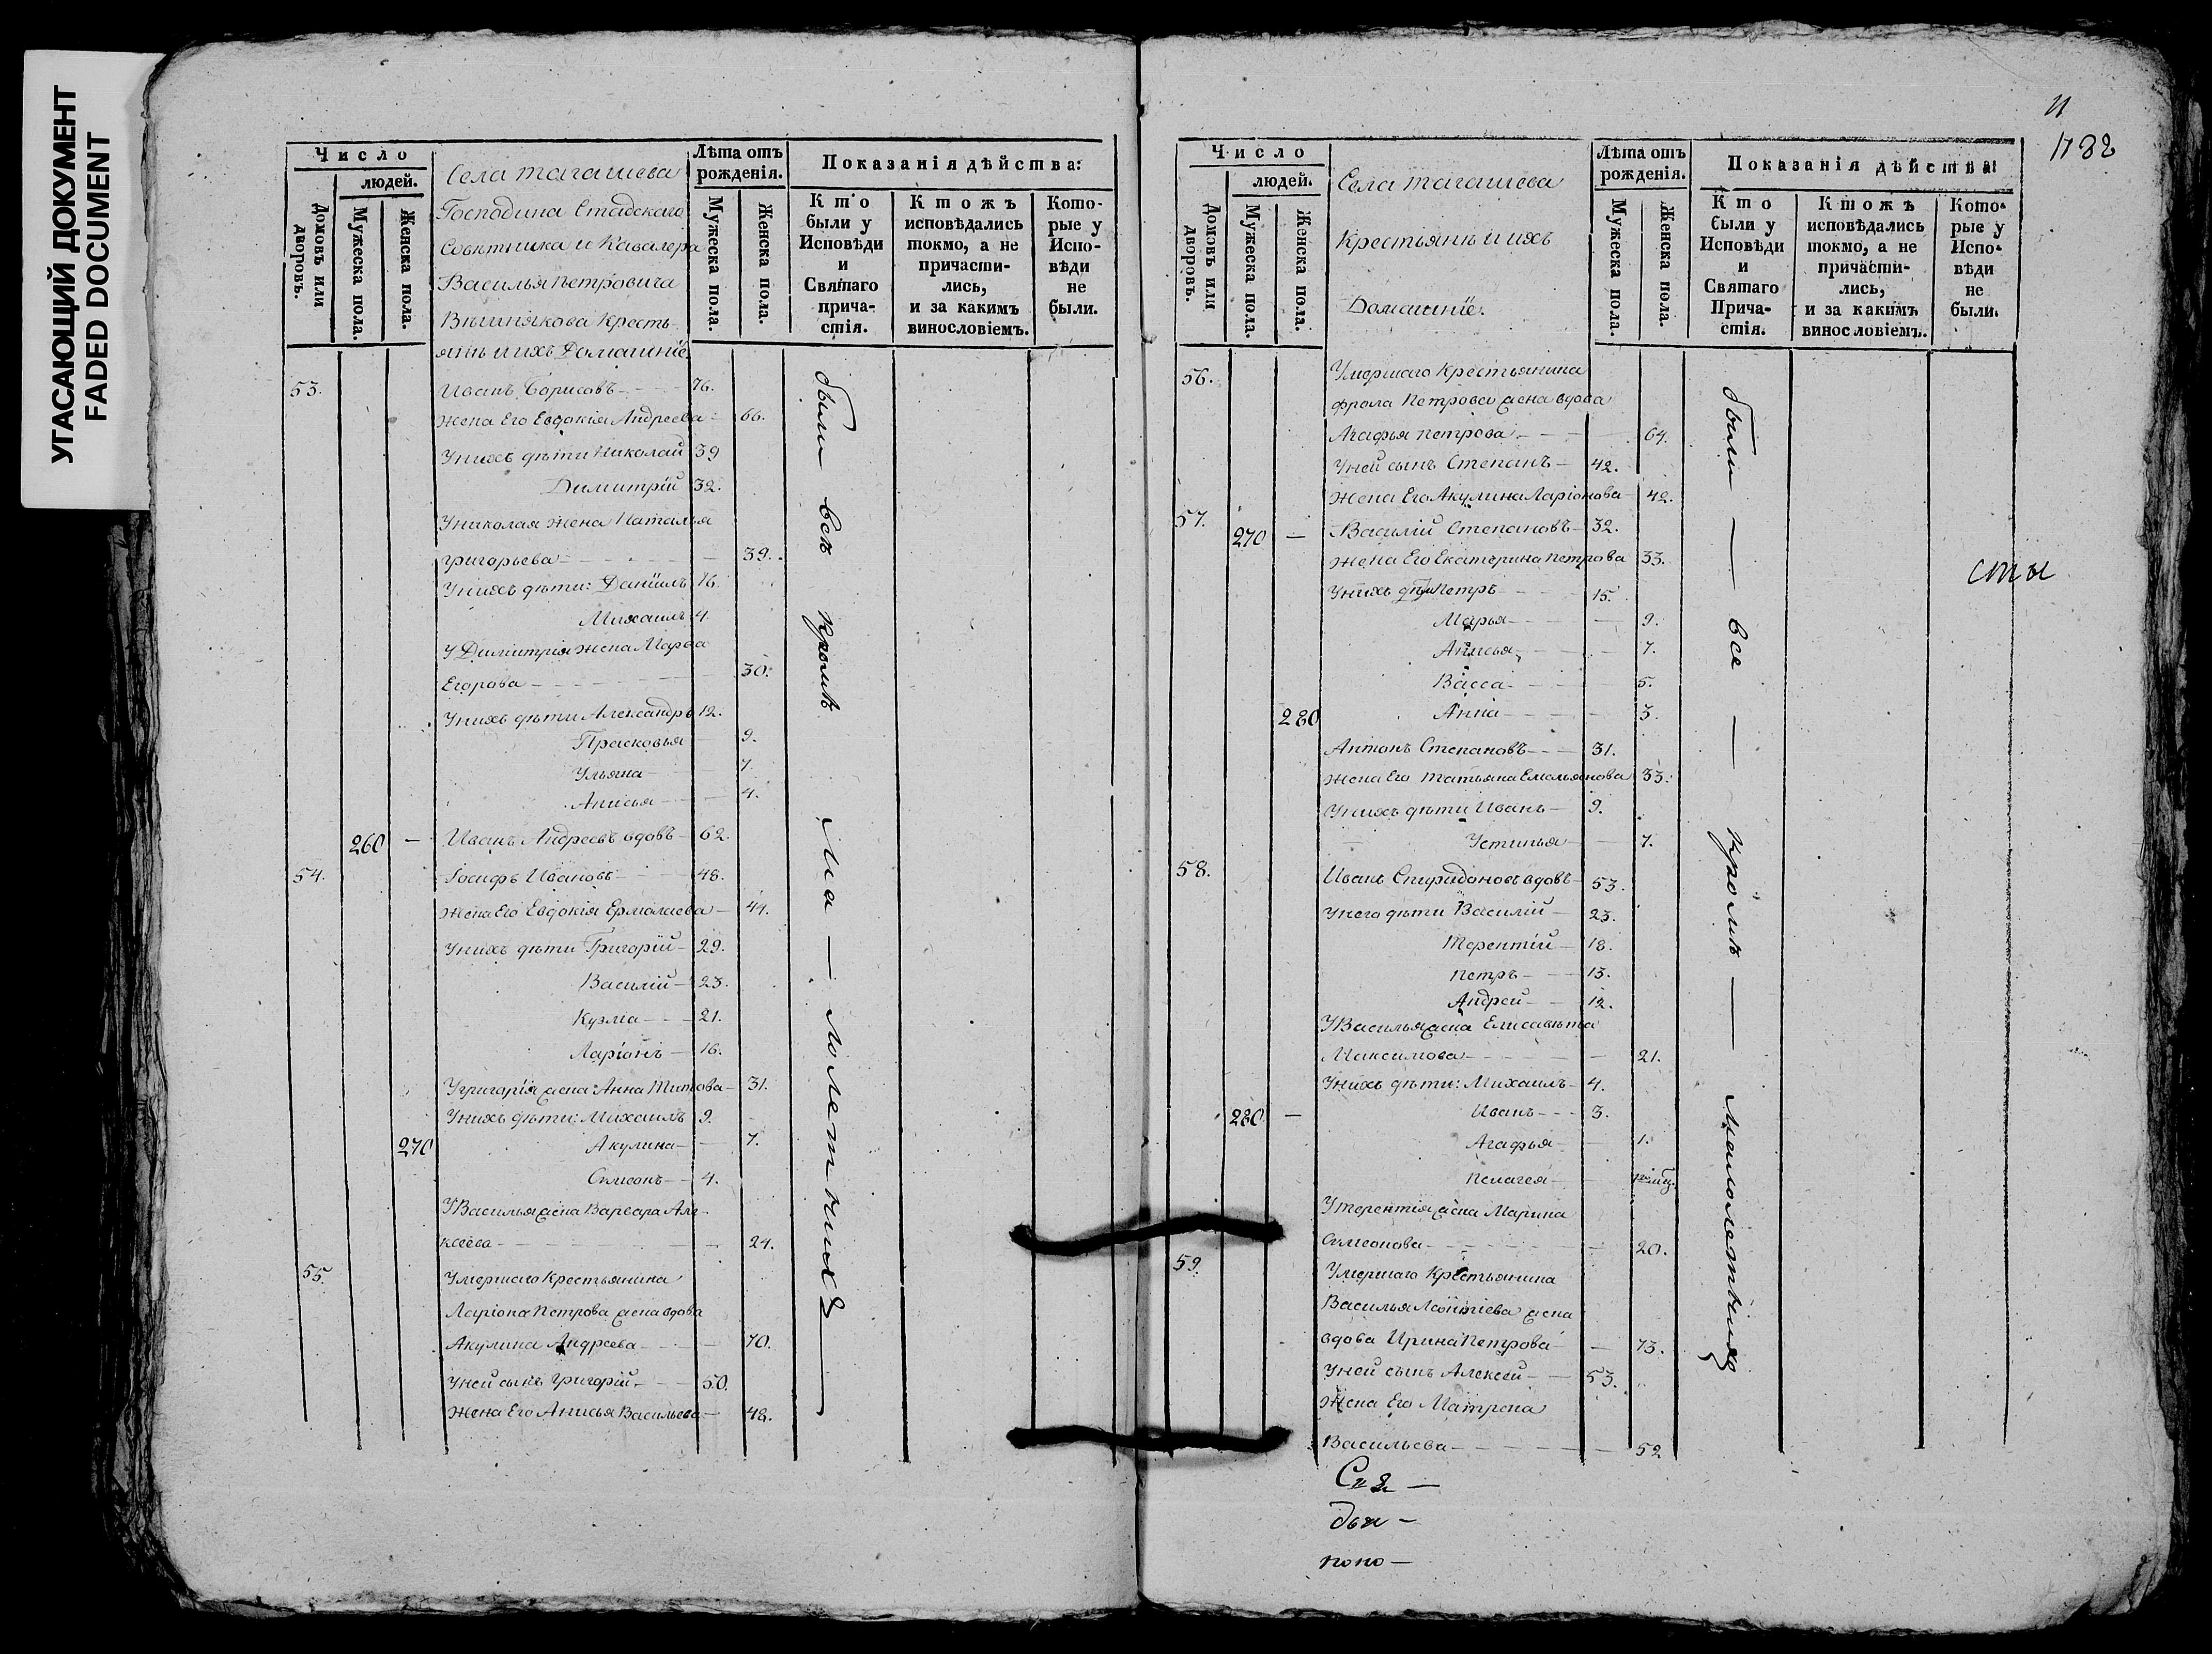 УГАСАЮЩИЙ ДОКУМЕНТ
FADED DOCUMENT
Число
людей.
Домовъ или дворовъ.
Мужеска пола.
Женска пола.
Села Тагашева
Господина Стадскаго
Совѣтника и Кавалера
Василья Петровича
Вѣшнякова Кресть-
янѣ и ихъ Домашніе
Лѣта отъ рожденія.
Мужеска пола.
Женска пола.
Показанія дѣйства:
Кто были у Исповѣди и Святаго прича-стія.
Ктожъ исповѣдались токмо, а не причасти-лись, и за какимъ винословіемъ.
Кото-рые у Испо-вѣди не были.
53. Иванъ Борисовъ - 76.
Жена Его Евдокія Андреева - 66.
У нихъ дѣти Николай 39
Димитрій 32.
У николая жена Наталья
григорьева - 39.
У нихъ дѣти: Даніилъ 16.
Михаилъ 4.
У Димитрія жена Марѳа
Егорова - 30.
У нихъ дѣти Александръ 12.
Прасковья - 9.
Ульяна - 7.
Анисья - 4.
260 - Иванъ Андреевъ вдовъ - 62.
54. Іосифъ Ивановъ - 48.
Жена Его Евдокія Ермолаева - 44.
У нихъ дѣти Григорій - 29.
Василій - 23.
Кузма - 21.
Ларіонъ - 16.
У григорія жена Анна Титова - 31.
У нихъ дѣти: Михаилъ 9.
270 Акулина - 7.
Симеонъ - 4.
У Василья жена Варвара Але-
ксеева - 24.
55. Умершаго Крестьянина
Ларіона Петрова жена вдова
Акулина Андреева - 70.
У ней сынъ Григорій - 50.
Жена Его Анисья Васильева - 48.
были всѣ кромѣ Ма - лолетнихъ
1782
Число
людей.
Домовъ или дворовъ.
Мужеска пола.
Женска пола.
Села Тагашева
Крестьянѣ и ихъ
Домашніе.
Лѣта отъ рожденія.
Мужеска пола.
Женска пола.
Показанія дѣйства:
Кто были у Исповѣди и Святаго Прича-стія.
Ктожъ исповѣдались токмо, а не причасти-лись, и за какимъ винословіемъ.
Кото-рые у Испо-вѣди не были.
56. Умершаго Крестьянина
фрола Петрова жена вдова
Агафья петрова - 64.
У ней сынъ Степанъ - 42.
Жена Его Акулина Ларіонова - 42.
57. 270 - Василій Степановъ - 32.
Жена Его Екатерина Петрова 33.
У нихъ дѣти Петръ - 15.
Марья - 9.
Анисья - 7.
Васса - 5.
280 Анна - 3.
Антонъ Степановъ - 31.
Жена Его Татьяна Емельянова 33.
У нихъ дѣти Иванъ - 9.
Устинья - 7.
58. Иванъ Спиридоновъ вдовъ - 53.
У него дѣти Василій - 23.
Терентій - 18.
Петръ - 13.
Андрей - 12.
У Василья жена Елисавета
Максимова - 21.
У нихъ дѣти: Михаилъ - 4.
280 - Иванъ - 3.
Агафья - 1.
Пелагея -
У терентія жена Марина
Симеонова - 20.
59. Умершаго Крестьянина
Василья Леонтіева жена
вдова Ирина Петрова - 73.
У ней сынъ Алексей - 53.
Жена Его Матрена
Васильева - 52
были - все - кромѣ - Малолетнихъ
сты
дья -
поно -